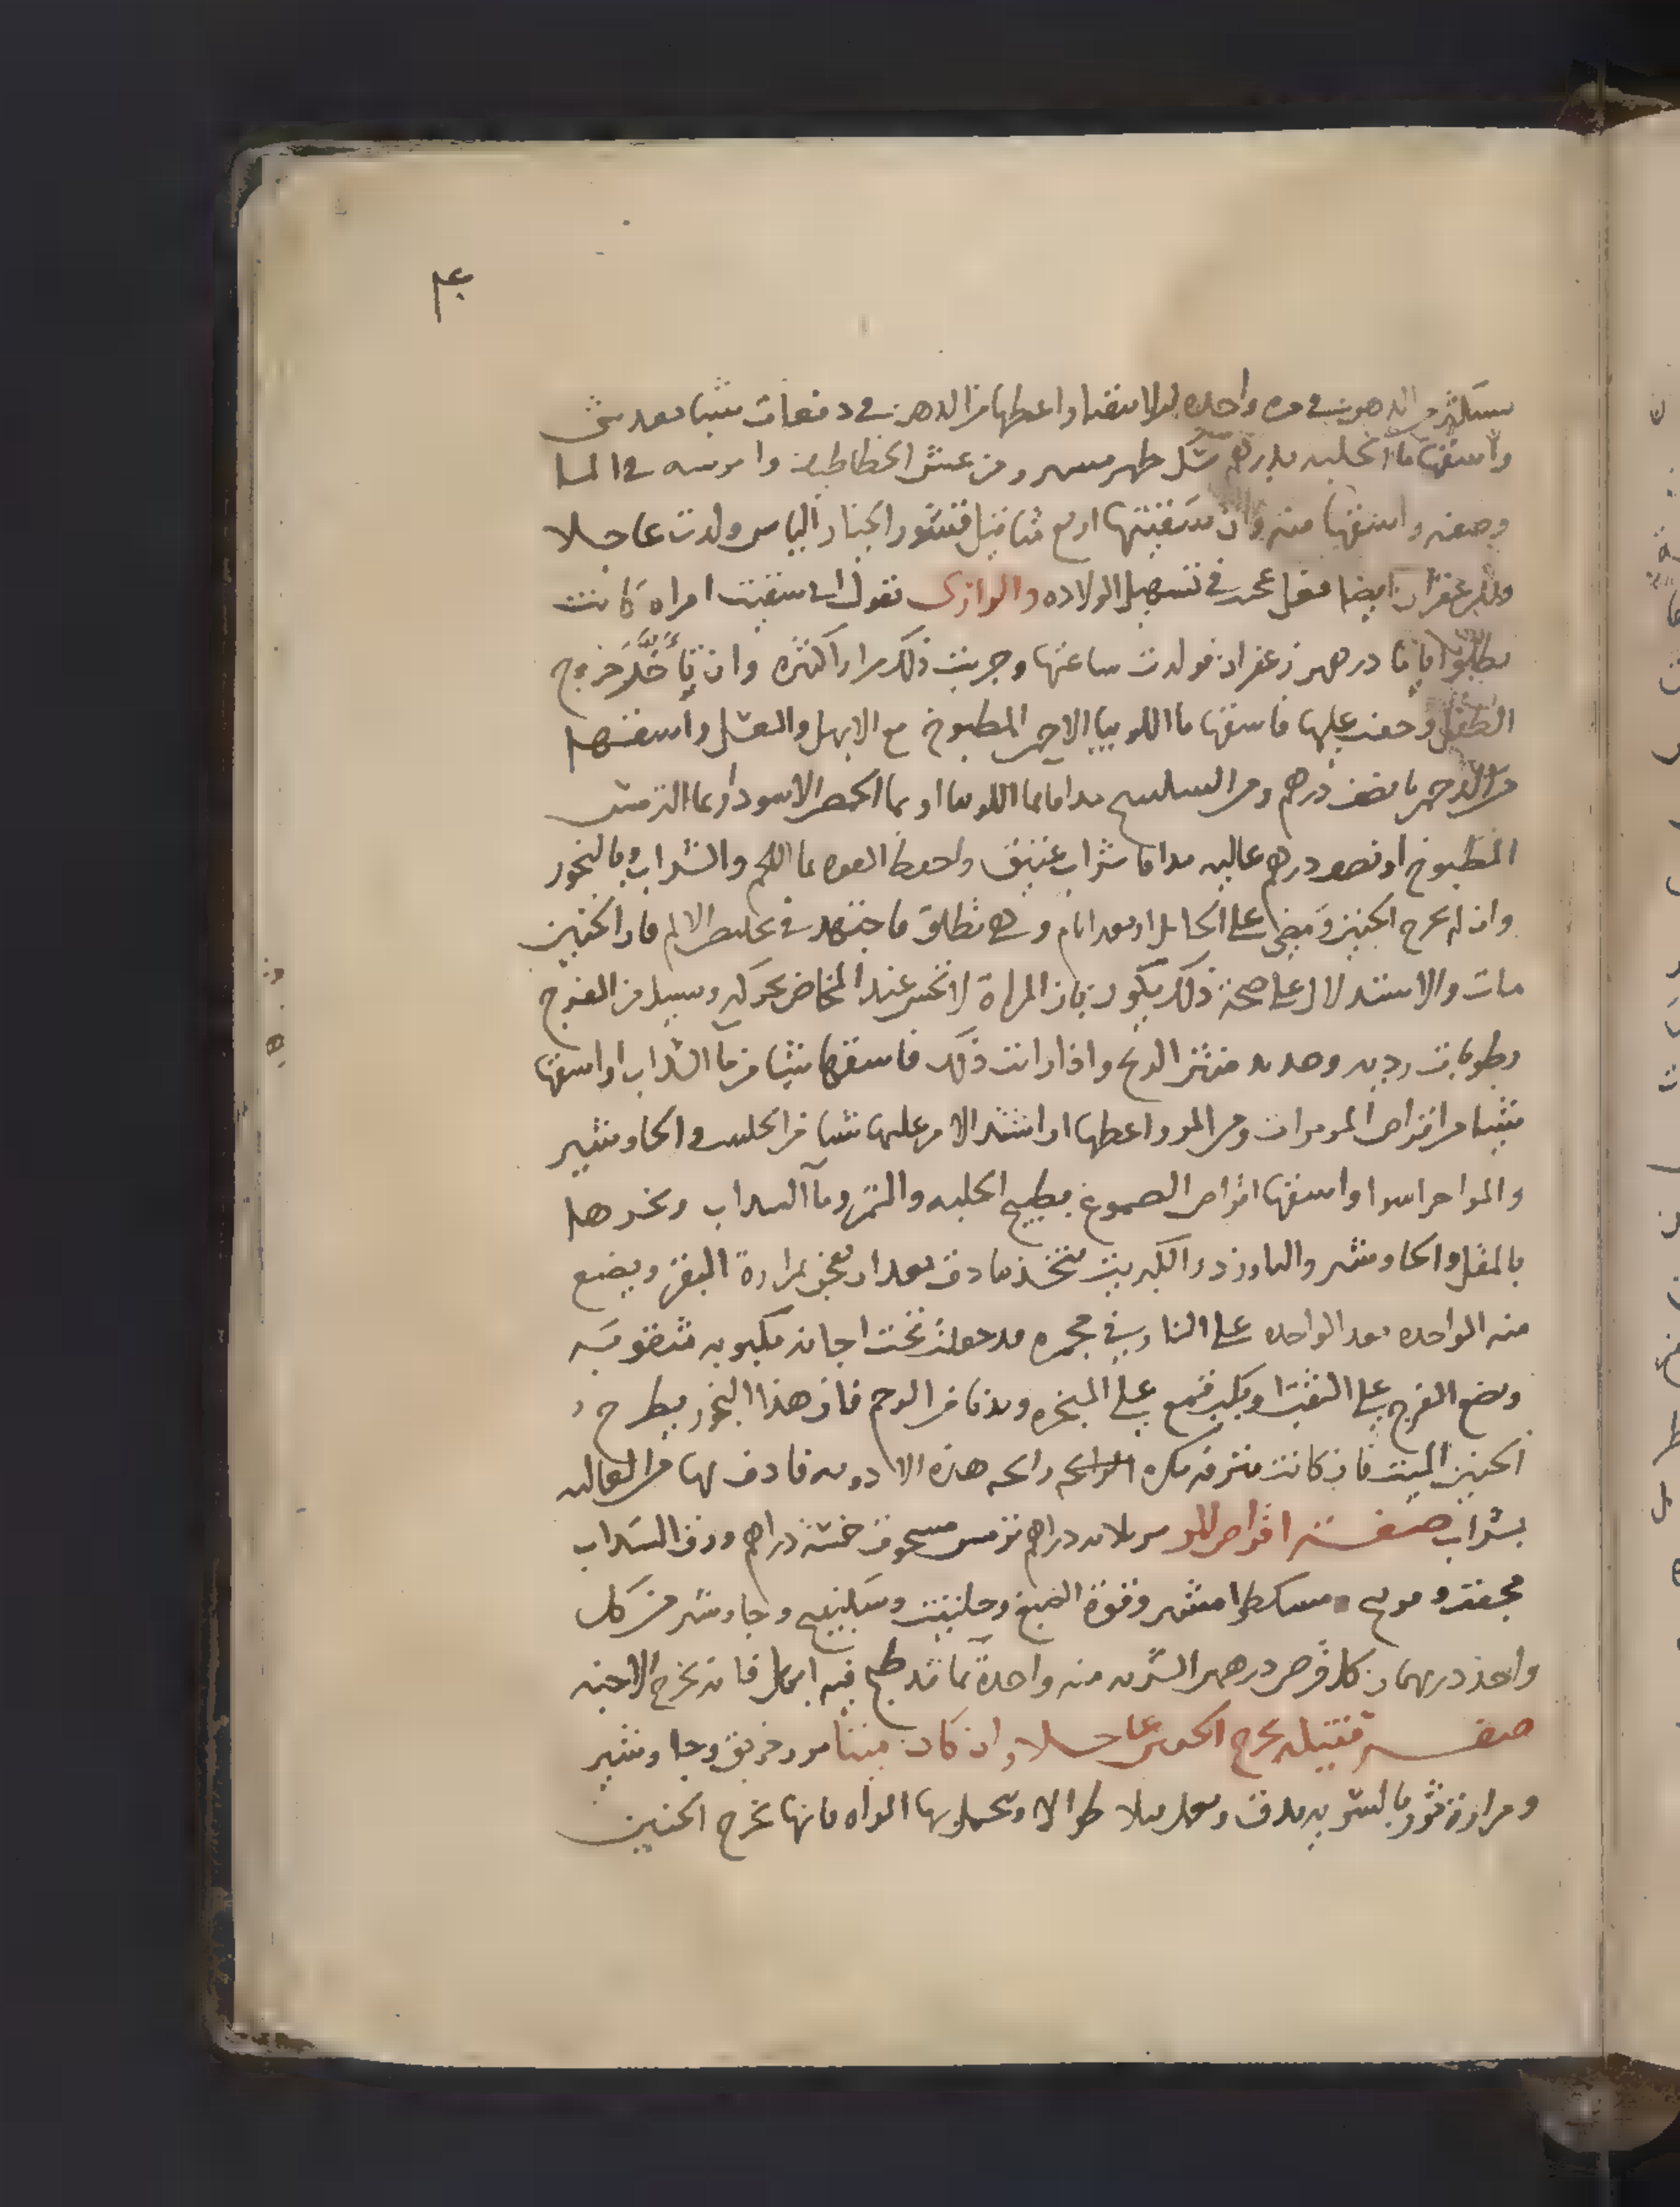 من الدهن في مره واحده واعطها من الدهن في دفعات شيا بعد شي
واسقها ما الحلبه ومن عش الخطاطيف وامرسه في الما
وصفه واسقها منه وان سقيتها اربع مثاقيل قشور الخيار اليابس ولدت عاجلا
وللزعفران ايضا فعل في تسهيل الولاده والرازى يقول انى سقيت امراه كانت
درهمين زعفران فولدت ساعتها وجربت ذلك مرارا كثره وان تأخّر خروج
الطفل وخفت عليها فاسقها ما اللوبيا الاحمر المطبوخ مع الابهل والعسل واسقها
نصف درهم ومن السكبينج مدافا بما اللوبيا او بما الحمص الاسود او بما الترمس
المطبوخ او نصف درهم غاليه مدافا بشراب عتيق واحفظ القوه بما اللحم والشراب وبالبخور
وان لم يخرج الجنين ومضى على الحامل اربعه ايام وهي تطلق فاجتهد في تخليص الام فان الجنين
مات والاستدلال على صحة ذلك يكون بان المراة لا تحس عند المخاض بحركه ويسيل من الفرج
رطوبات رديه وصديد منتن الريح واذا رايت ذلك فاسقها شيا من ما السداب او اسقها
شيا من اقراص المر واعطها اذا اشتد الامر عليها شيا من الحلتيت والجاوشير
والمر اجزا سوا واسقها اقراص الصموغ بطبيخ الحلبه والتمر وما السداب وبخرها
بالمقل والجاوشير والبارزد والكبريت يتخذ بنادق بعد ان يعجن بمرارة البقر ويضع
منه الواحده بعد الواحده على النار في مجمره تحت اجانه مكبوبه مثقوبه
ويضع الفرج على الثقب ويكب قمع على المبخره ويدنا من الرحم فان هذا البخور يطرح
الجنين الميت فان كانت مترفه تكره رايحه هذه الادويه فادف لها من الغاليه
بشراب صفـــة اقراص المر مر ثلاثه دراهم ترمس مسحوق خمسة دراهم ورق السداب
مجفف وفوتنج ومسكطرامشير وفوة الصبغ وحلتيت وسكبينج وجاوشير من كل
واحد درهمان كل قرص درهمين الشربه منه واحدة بما قد طبخ فيه ابهل فانه يخرج الاجنه
صفـــة فتيله تخرج الجنين عاجلا وان كان ميتا مر وخربق وجاوشير
ومرارة ثور بالسويه يدق ويعمل طوالا وتتحمل بها المراه فانها تخرج الجنين